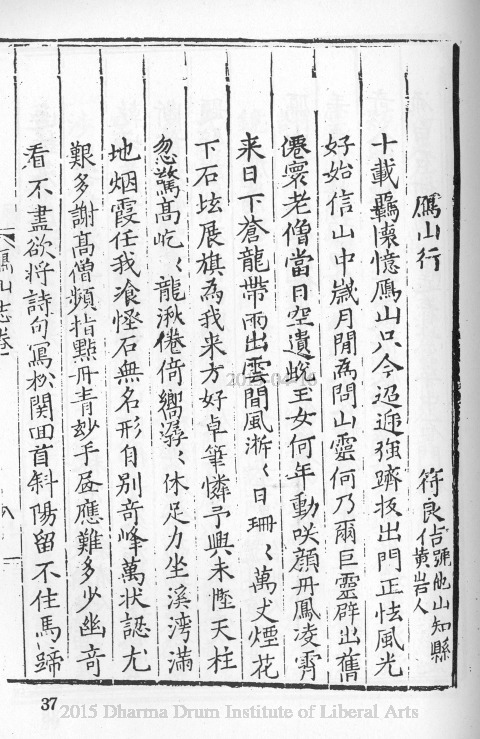 鴈山行
符良佶號他山知縣黃岩人
十載羈懷憶鴈山只今迢遞強躋扳出門正怯風光
好始信山中歲月閒為問山靈何乃爾巨靈辟出舊
僊寰老僧當日空遺蛻玉女何年動咲顏丹鳳凌霄
来日下蒼龍帶雨出雲間風淅〻日珊〻萬丈煙花
下石坛展旗為我来方好卓筆憐予興未慳天柱
忽驚髙屹〻龍湫倦倚嚮潺〻休足力坐溪灣滿
地烟霞任我飡怪石無名形自別竒峰萬狀認尤
艱多謝髙僧頻指點丹青玅手昼應難多少幽竒
看不盡欲將詩句寫松関回首斜陽留不住馬蹄
鴈山志卷一
八
37
2015 Dharma Drum Institute of Liberal Arts